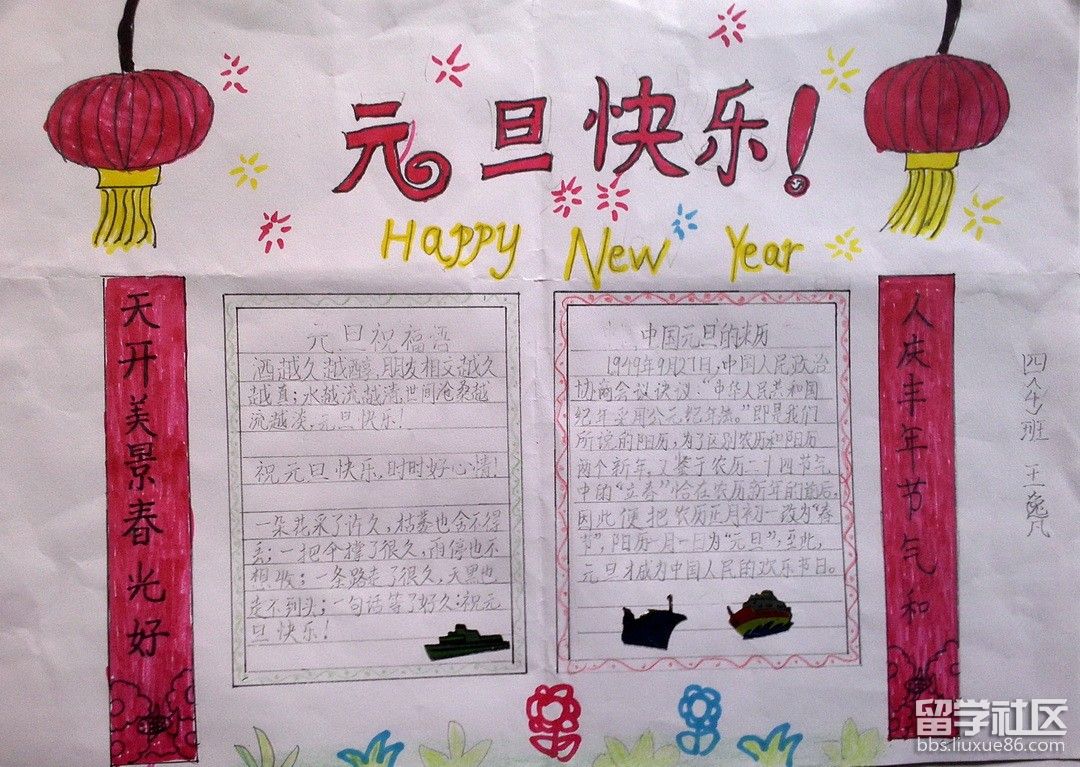 元旦快乐!
Happy New Year
天开美景春光好
元旦祝福语
酒越久越醇,朋友相交越久
越真;水越流越清,世间沧桑越
流越淡。元旦快乐!
祝元旦快乐,时时好心情!
一朵花采了许久,枯萎也舍不得
丢;一把伞撑了很久,雨停也不
想收;一条路走了很久,天黑也
走不到头;一句话等了好久:祝元
旦快乐!
中国元旦的来历
1949年9月27日,中国人民政治
协商会议决议:“中华人民共和国
纪年采用公元纪年法。”即是我们
所说的阳历,为了区别农历和阳历
两个新年,又鉴于农历二十四节气
中的“立春”恰在农历新年的前后,
因此便把农历正月初一改为“春
节”,阳历一月一日为“元旦”,至此,
元旦才成为中国人民的欢乐节日。
人庆丰年节气和
四(4)班 王逸凡
留学社区
bbs.liuxue86.com